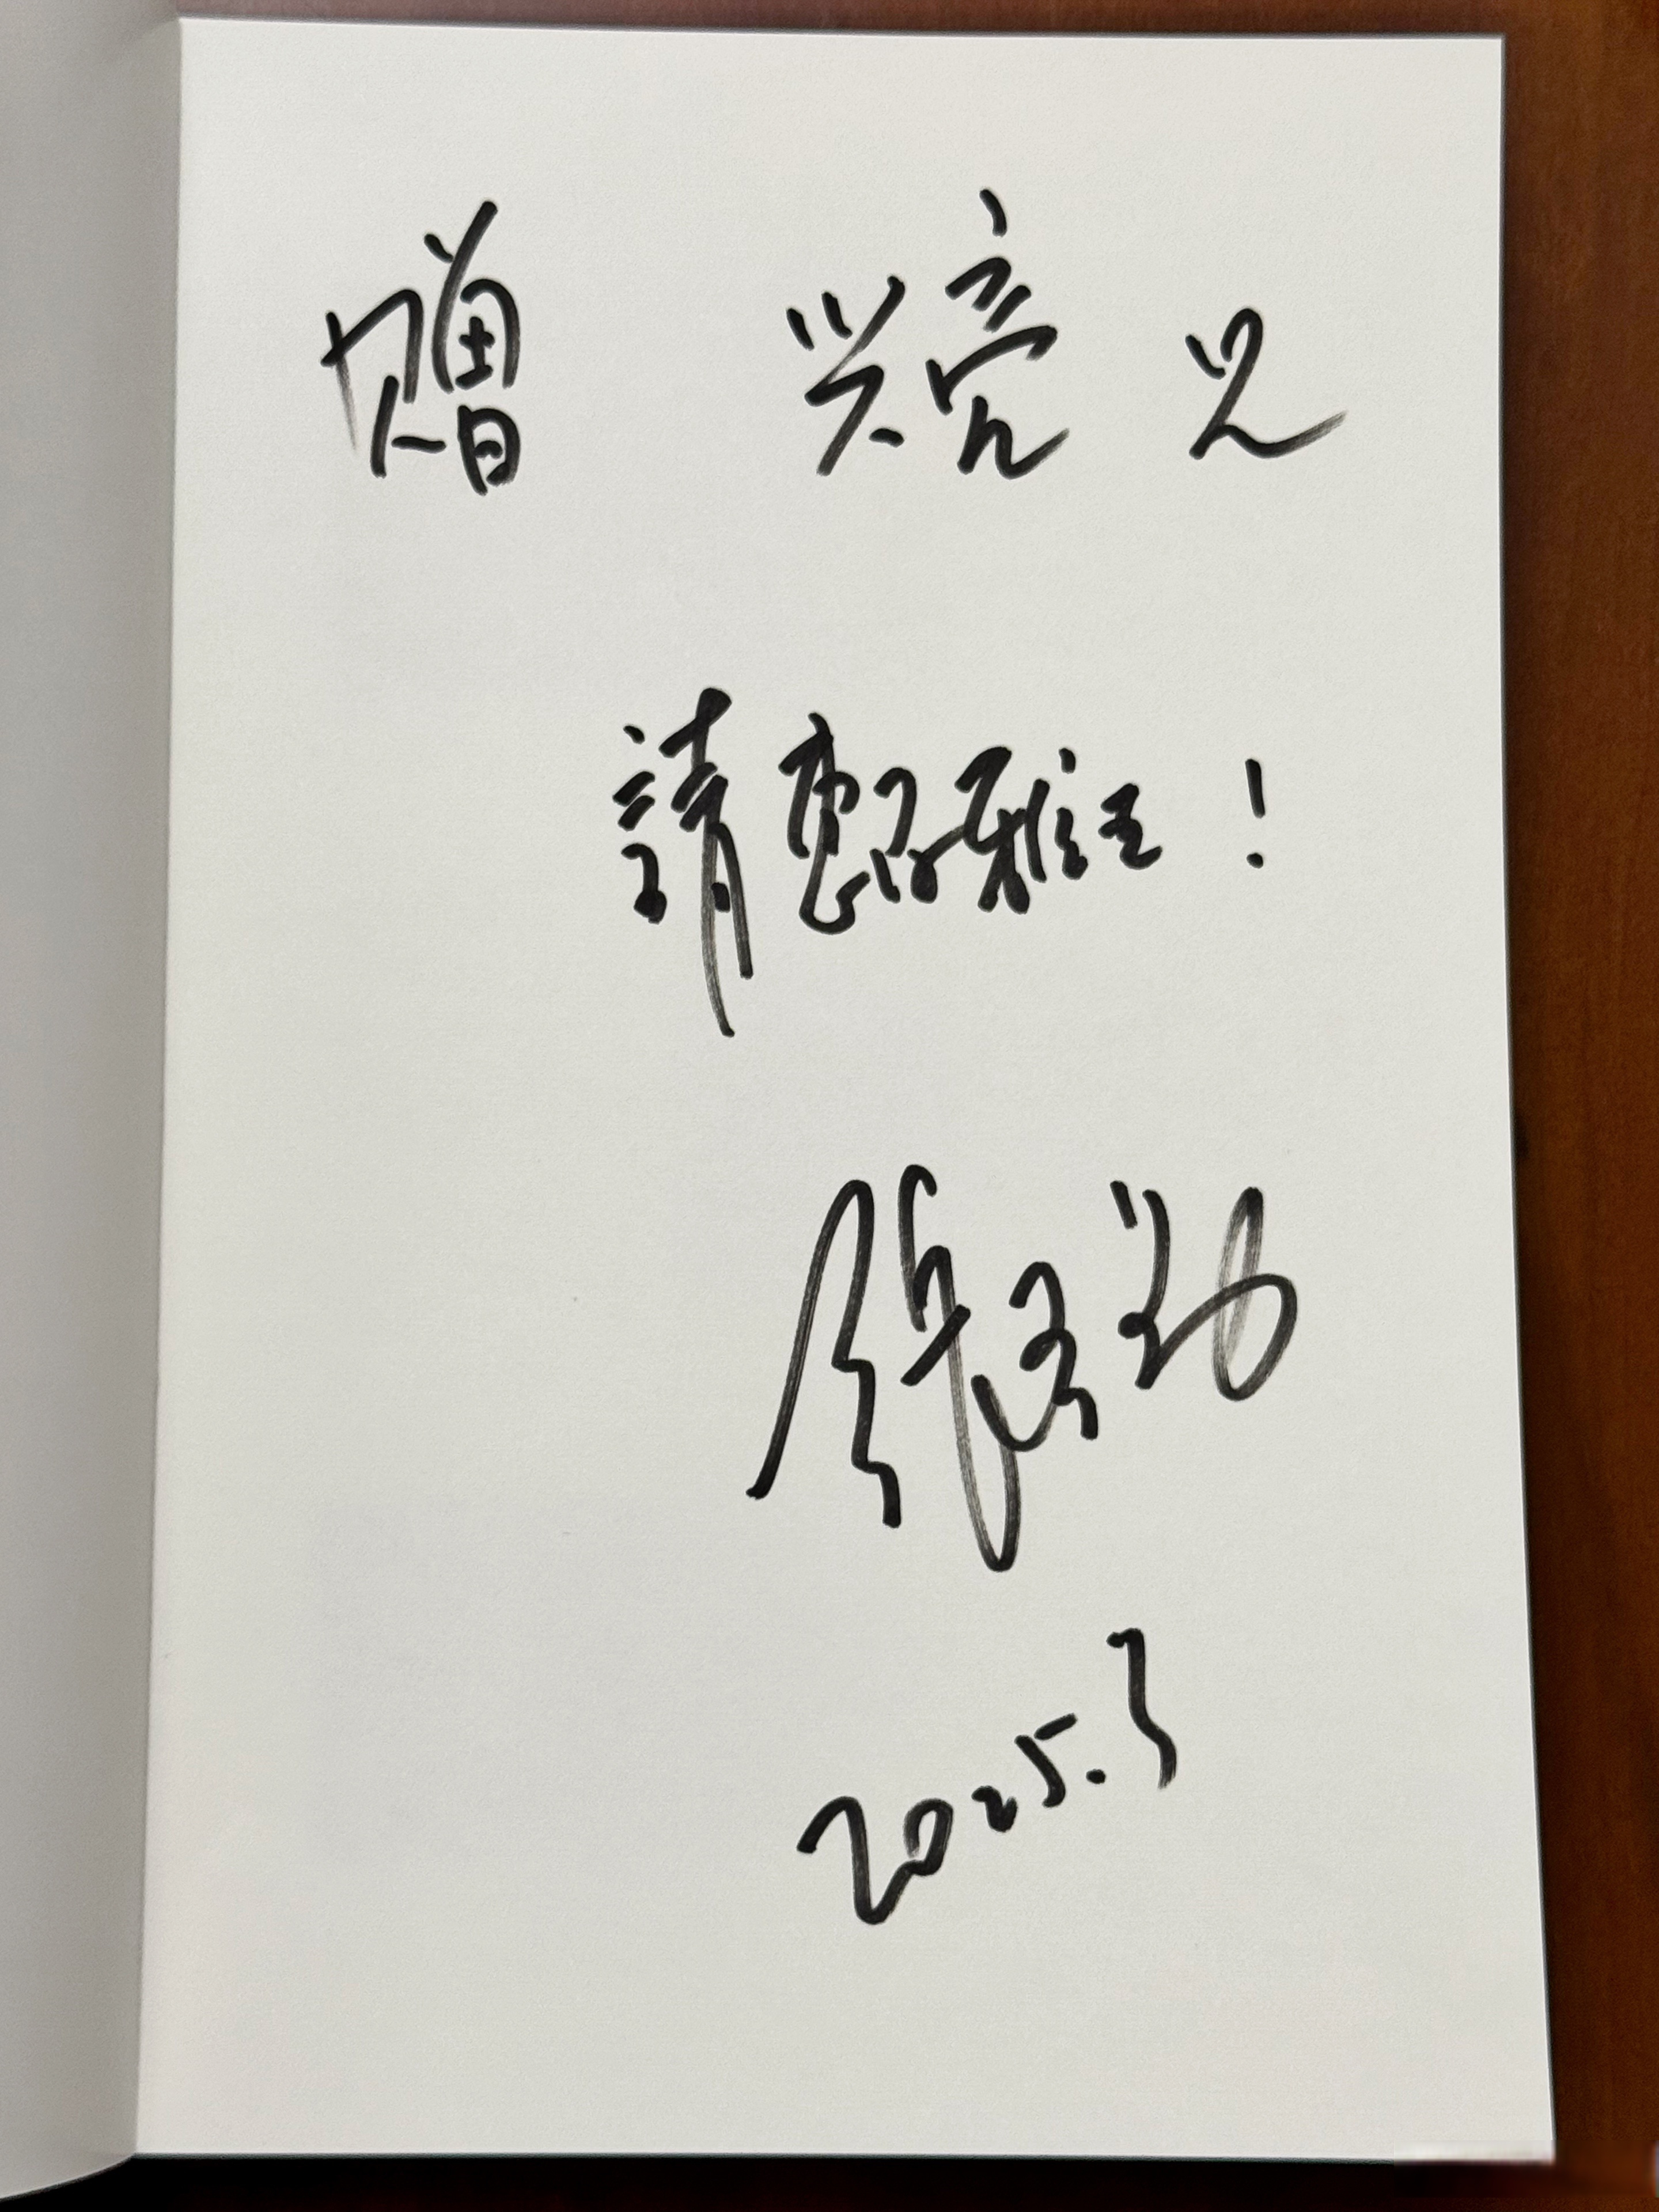 赠 兴亮兄
請惠存雅正!
2025.3